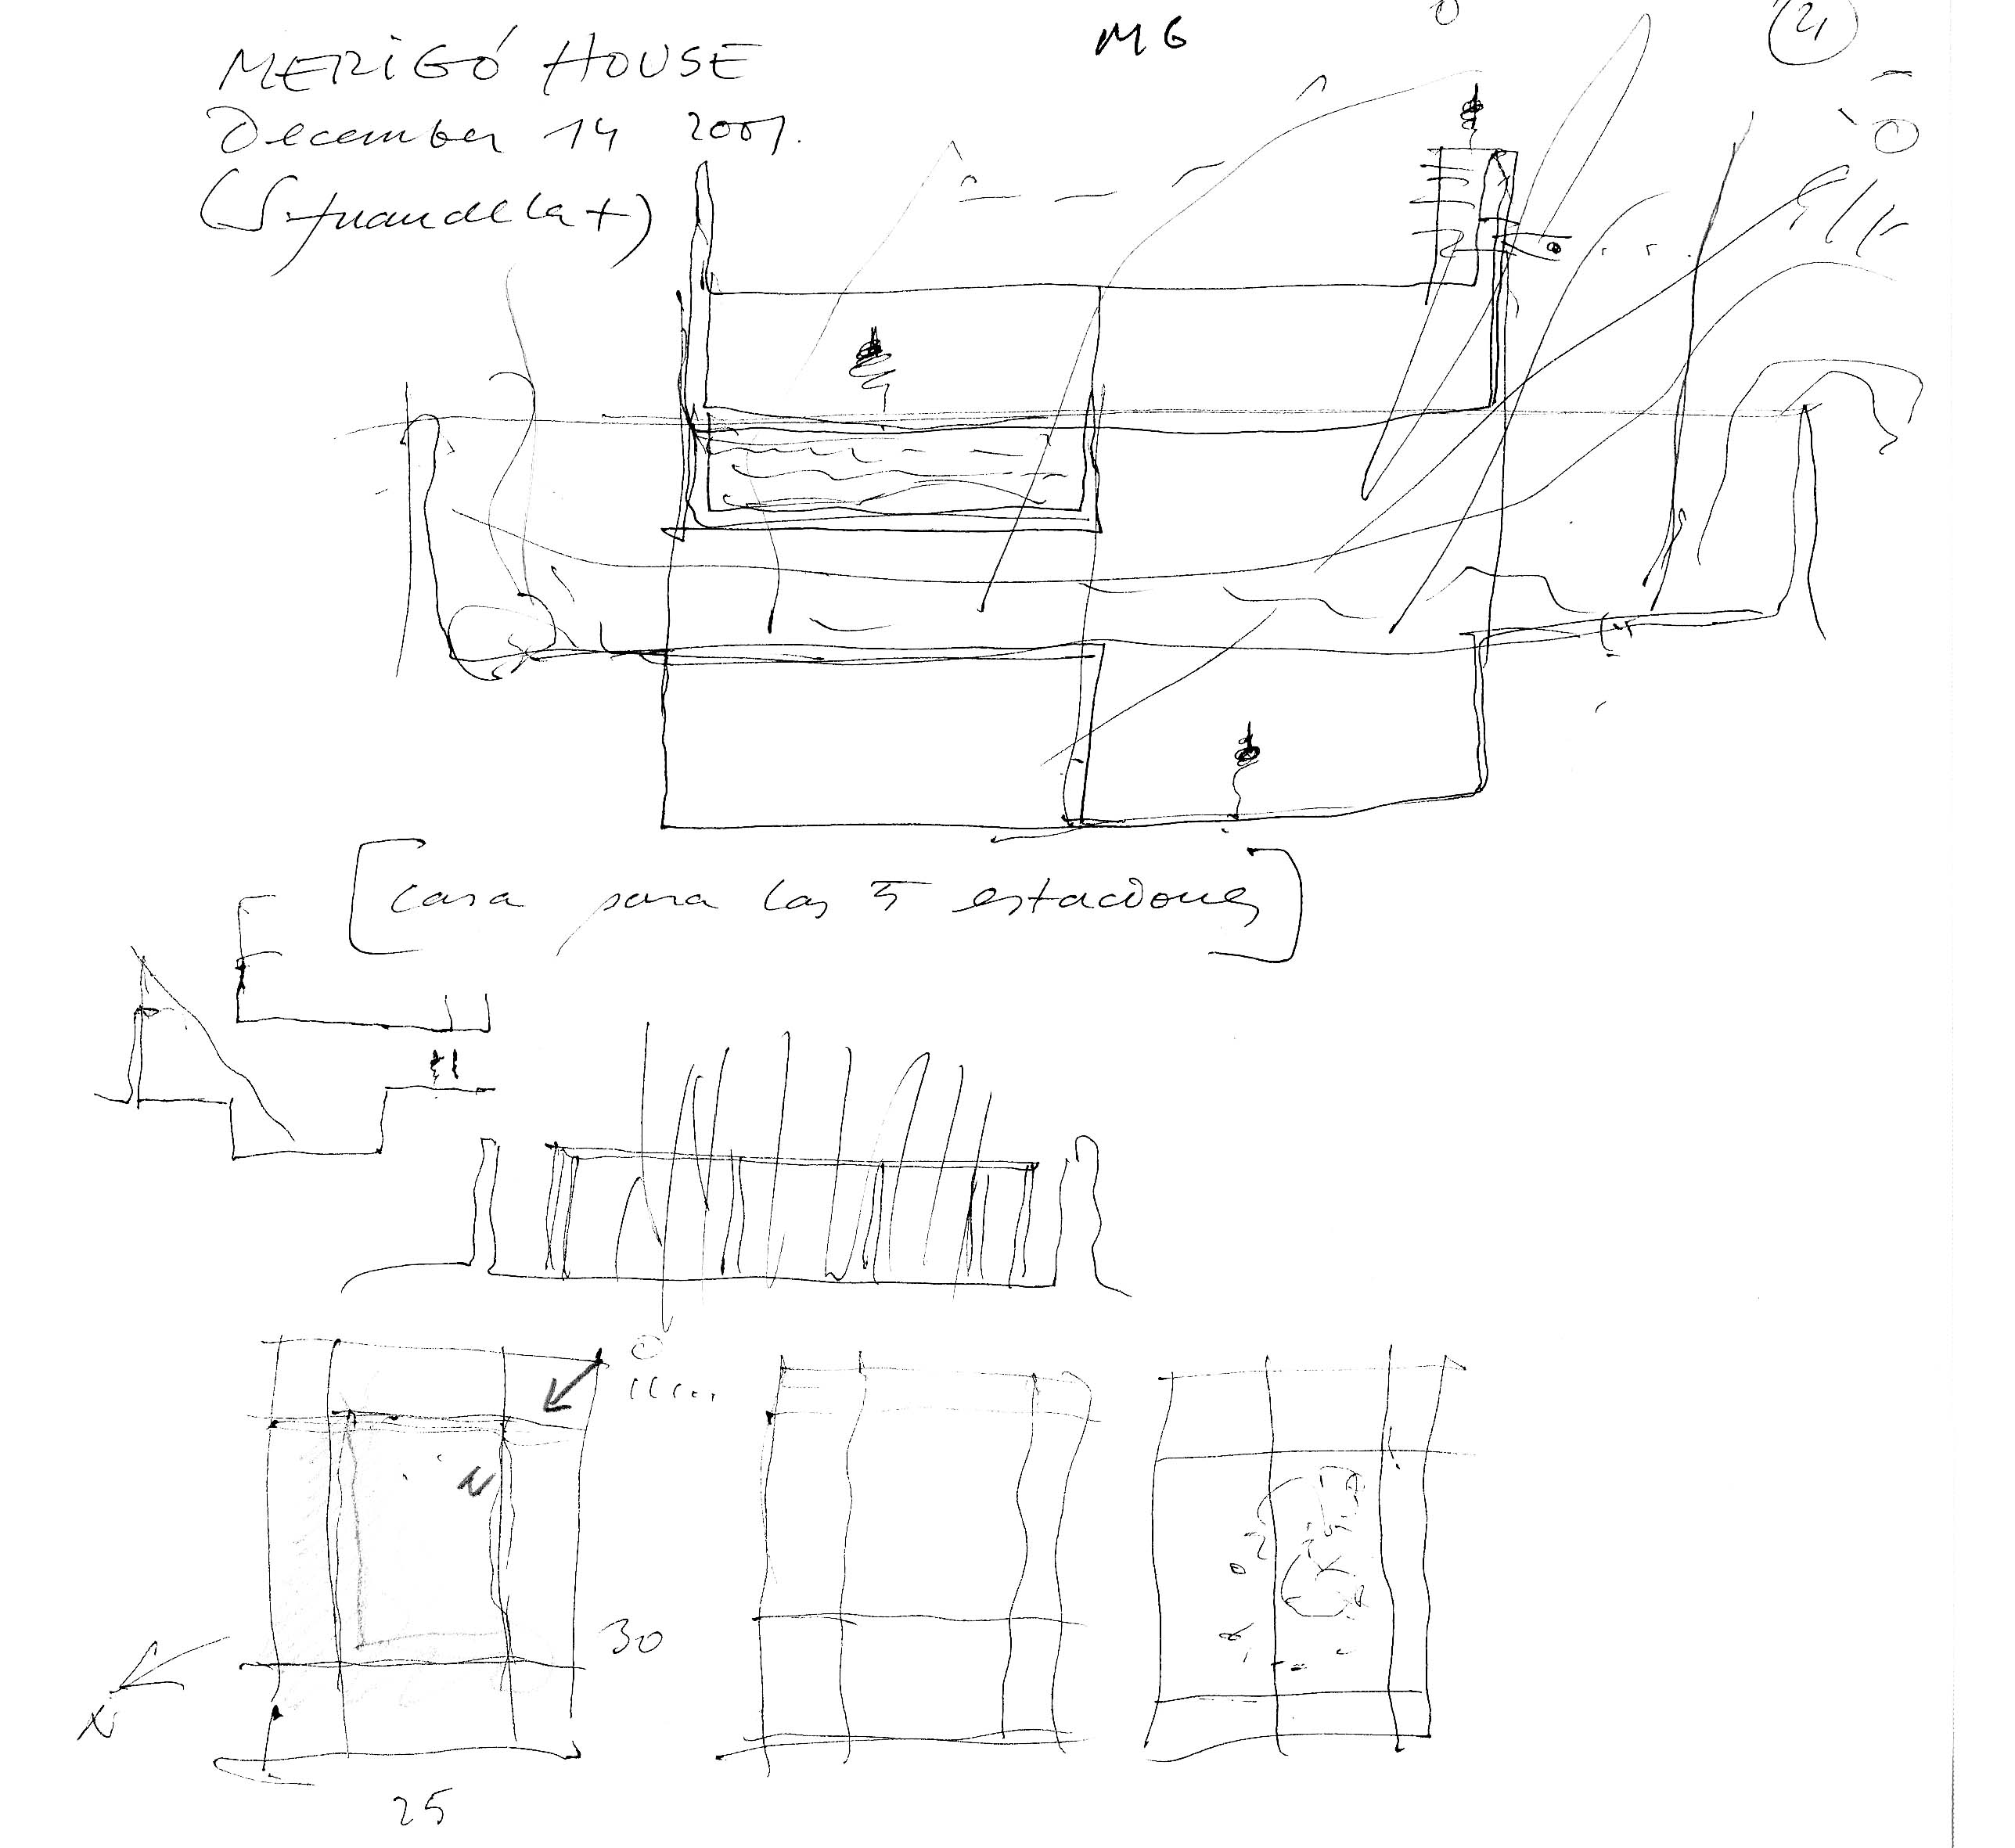 MERIGÓ HOUSE
M6
December 14 2001.
(S. Juan de la +)
[casa para las 5 estaciones]
30
N
25